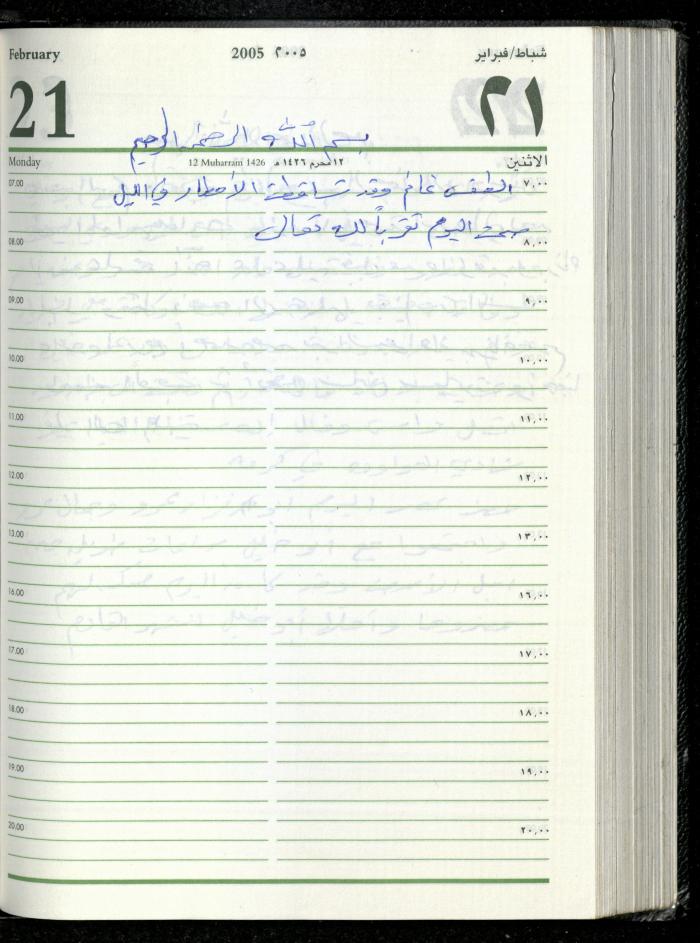 February 2005 ٢٠٠٥ شباط/فبراير
21 ٢١
بسم الله الرحمن الرحيم
Monday 12 Muharram 1426 ١٢ محرم ١٤٢٦ هـ الاثنين
07.00 ٧,٠٠
الطقس غائم وقد تساقطت الأمطار في الليل
صمت اليوم تقرباً لله تعالى
08.00 ٨,٠٠
09.00 ٩,٠٠
10.00 ١٠,٠٠
11.00 ١١,٠٠
12.00 ١٢,٠٠
13.00 ١٣,٠٠
16.00 ١٦,٠٠
17.00 ١٧,٠٠
18.00 ١٨,٠٠
19.00 ١٩,٠٠
20.00 ٢٠,٠٠